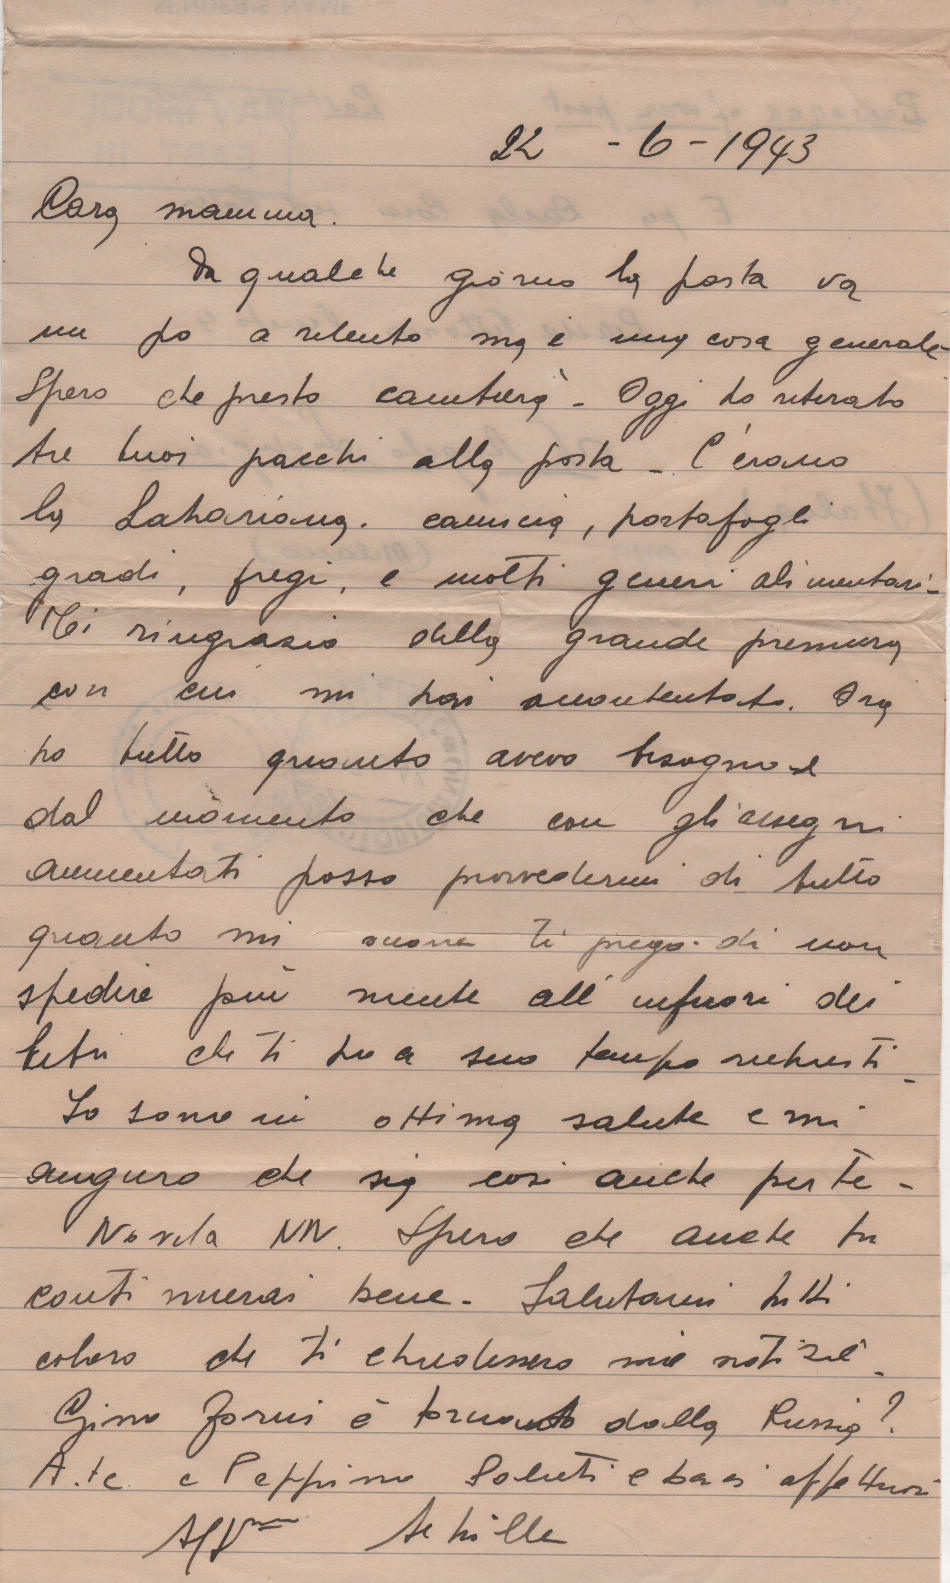 22 - 6 - 1943
Cara mamma.
Da qualche giorno la posta va
un po a rilento ma è una cosa generale
Spero che presto cambierà - Oggi ho ritirato
tre tuoi pacchi alla posta - C'erano
la Sahariana. camicia, portafogli
gradi, fregi, e molti generi alimentari -
Ti ringrazio della grande premura
con cui mi hai accontentato. Ora
ho tutto quanto avevo bisogno e
dal momento che con gli assegni
aumentati posso provvedermi di tutto
quanto mi occorre ti prego di non
spedire più niente all'infuori dei
libri che ti ho a suo tempo richiesti -
Io sono in ottima salute e mi
auguro che sia così anche per te -
Novità NN. Spero che anche tu
continuerai bene - Salutami tutti
coloro che ti chiedessero mie notizie -
Gino Zorni è tornato dalla Russia?
A te e Peppino Saluti e baci affettuosi
Aff.mo Achille